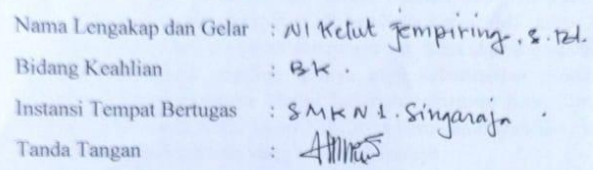 Nama Lengakap dan Gelar : Ni Ketut Jempiring, S.Pd.
Bidang Keahlian : BK.
Instansi Tempat Bertugas : SMKN 1. Singaraja
Tanda Tangan :